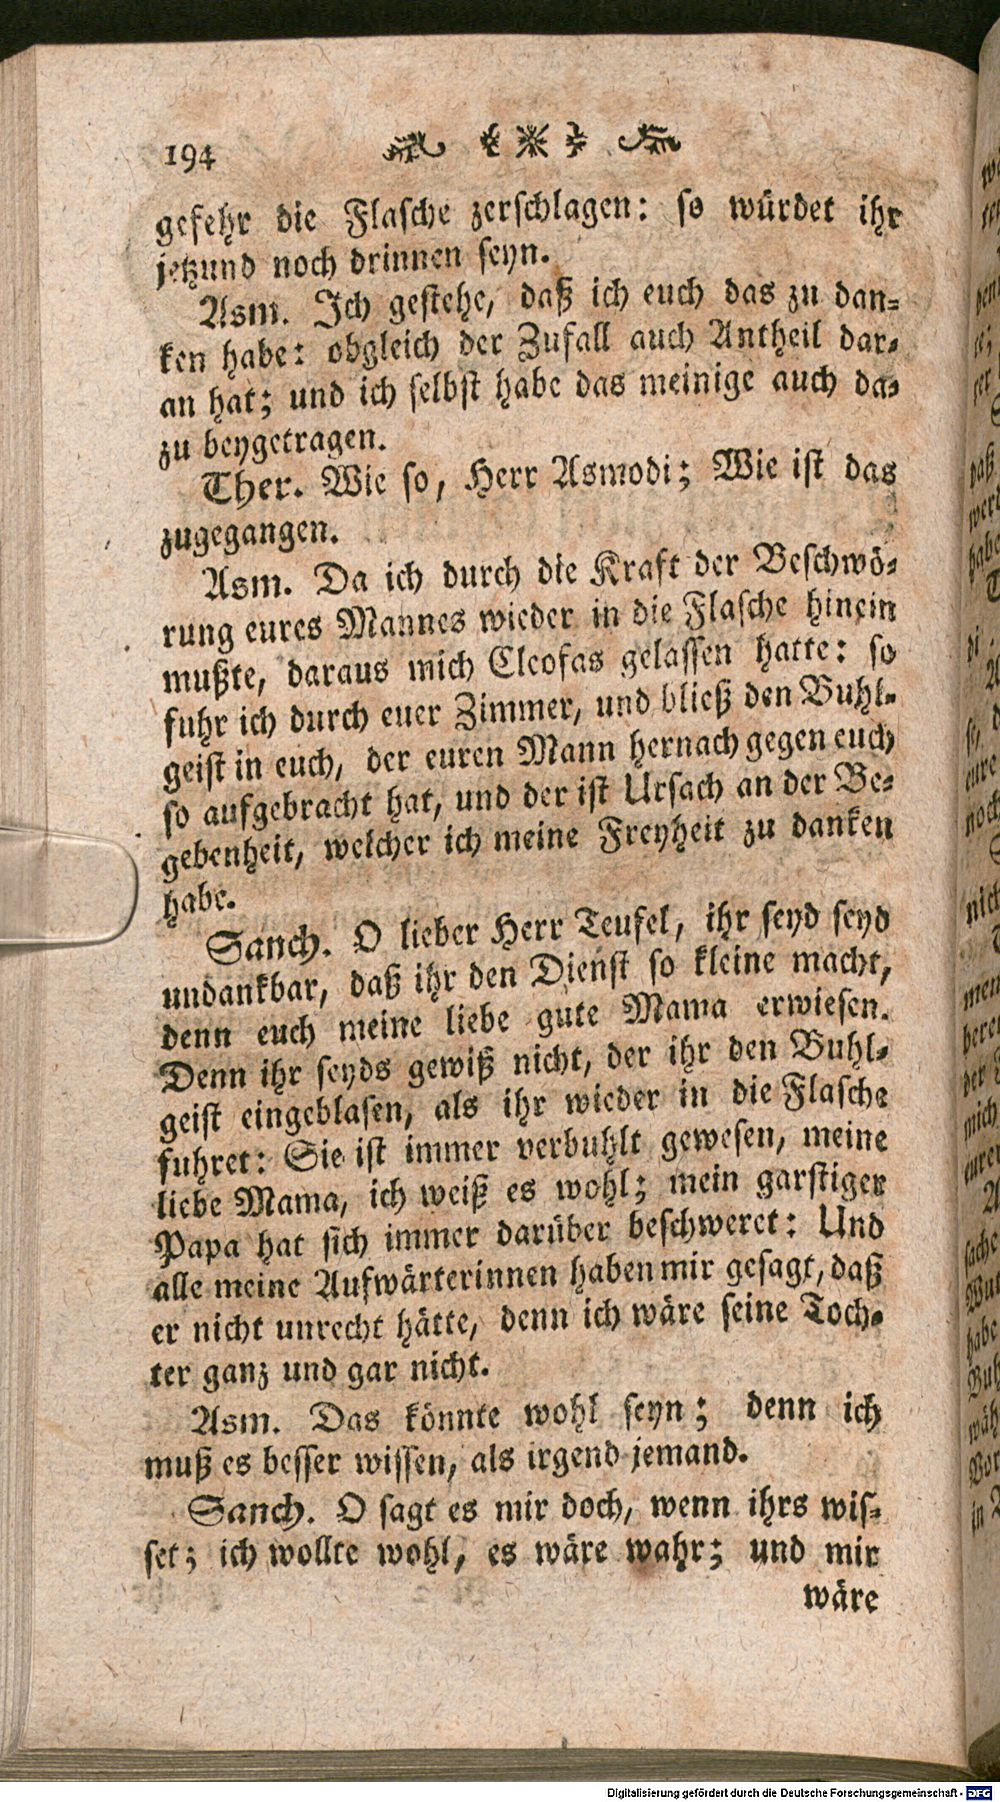 194
gefehr die Flasche zerschlagen: so würdet ihr
jetzund noch drinnen seyn.
Asm. Ich gestehe, daß ich euch das zu dan-
ken habe: obgleich der Zufall auch Antheil dar-
an hat; und ich selbst habe das meinige auch da-
zu beygetragen.
Ther. Wie so, Herr Asmodi; Wie ist das
zugegangen.
Asm. Da ich durch die Kraft der Beschwö-
rung eures Mannes wieder in die Flasche hinein
mußte, daraus mich Cleofas gelassen hatte: so
fuhr ich durch euer Zimmer, und bließ den Buhl-
geist in euch, der euren Mann hernach gegen euch
so aufgebracht hat, und der ist Ursach an der Be-
gebenheit, welcher ich meine Freyheit zu danken
habe.
Sanch. O lieber Herr Teufel, ihr seyd seyd
undankbar, daß ihr den Dienst so kleine macht,
denn euch meine liebe gute Mama erwiesen.
Denn ihr seyds gewiß nicht, der ihr den Buhl-
geist eingeblasen, als ihr wieder in die Flasche
fuhret: Sie ist immer verbuhlt gewesen, meine
liebe Mama, ich weiß es wohl; mein garstiger
Papa hat sich immer darüber beschweret: Und
alle meine Aufwärterinnen haben mir gesagt, daß
er nicht unrecht hätte, denn ich wäre seine Toch-
ter ganz und gar nicht.
Asm. Das könnte wohl seyn; denn ich
muß es besser wissen, als irgend jemand.
Sanch. O sagt es mir doch, wenn ihrs wis-
set; ich wollte wohl, es wäre wahr; und mir
wäre
Digitalisierung gefördert durch die Deutsche Forschungsgemeinschaft - DFG